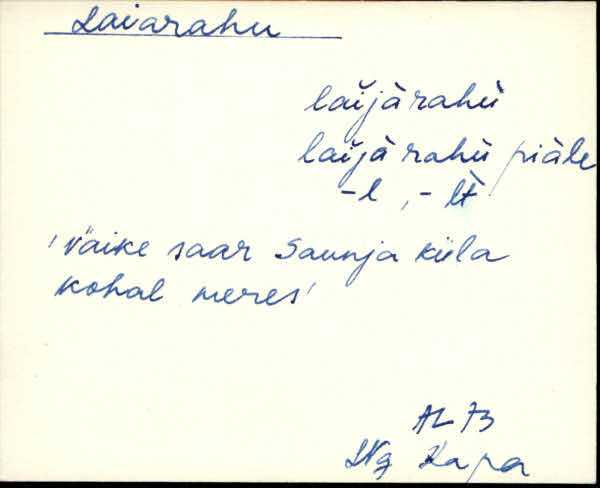 Laiarahu
laĭjàrahù
laĭjà rahù piäle
-l, -lt
'väike saar Saunja küla
kohal meres'
AL 73
Ng Kapa